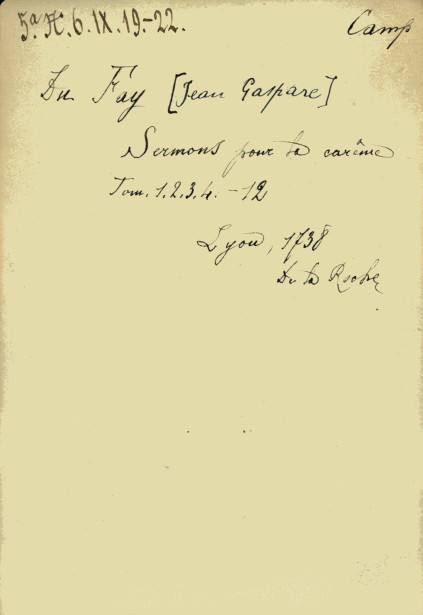 5ª A. 6. IX. 19.-22.
Camp
Du Fay [Jean Gaspare]
Sermons pour la carême
Tom. 1. 2. 3. 4. - 12
Lyon, 1738
De la Roche